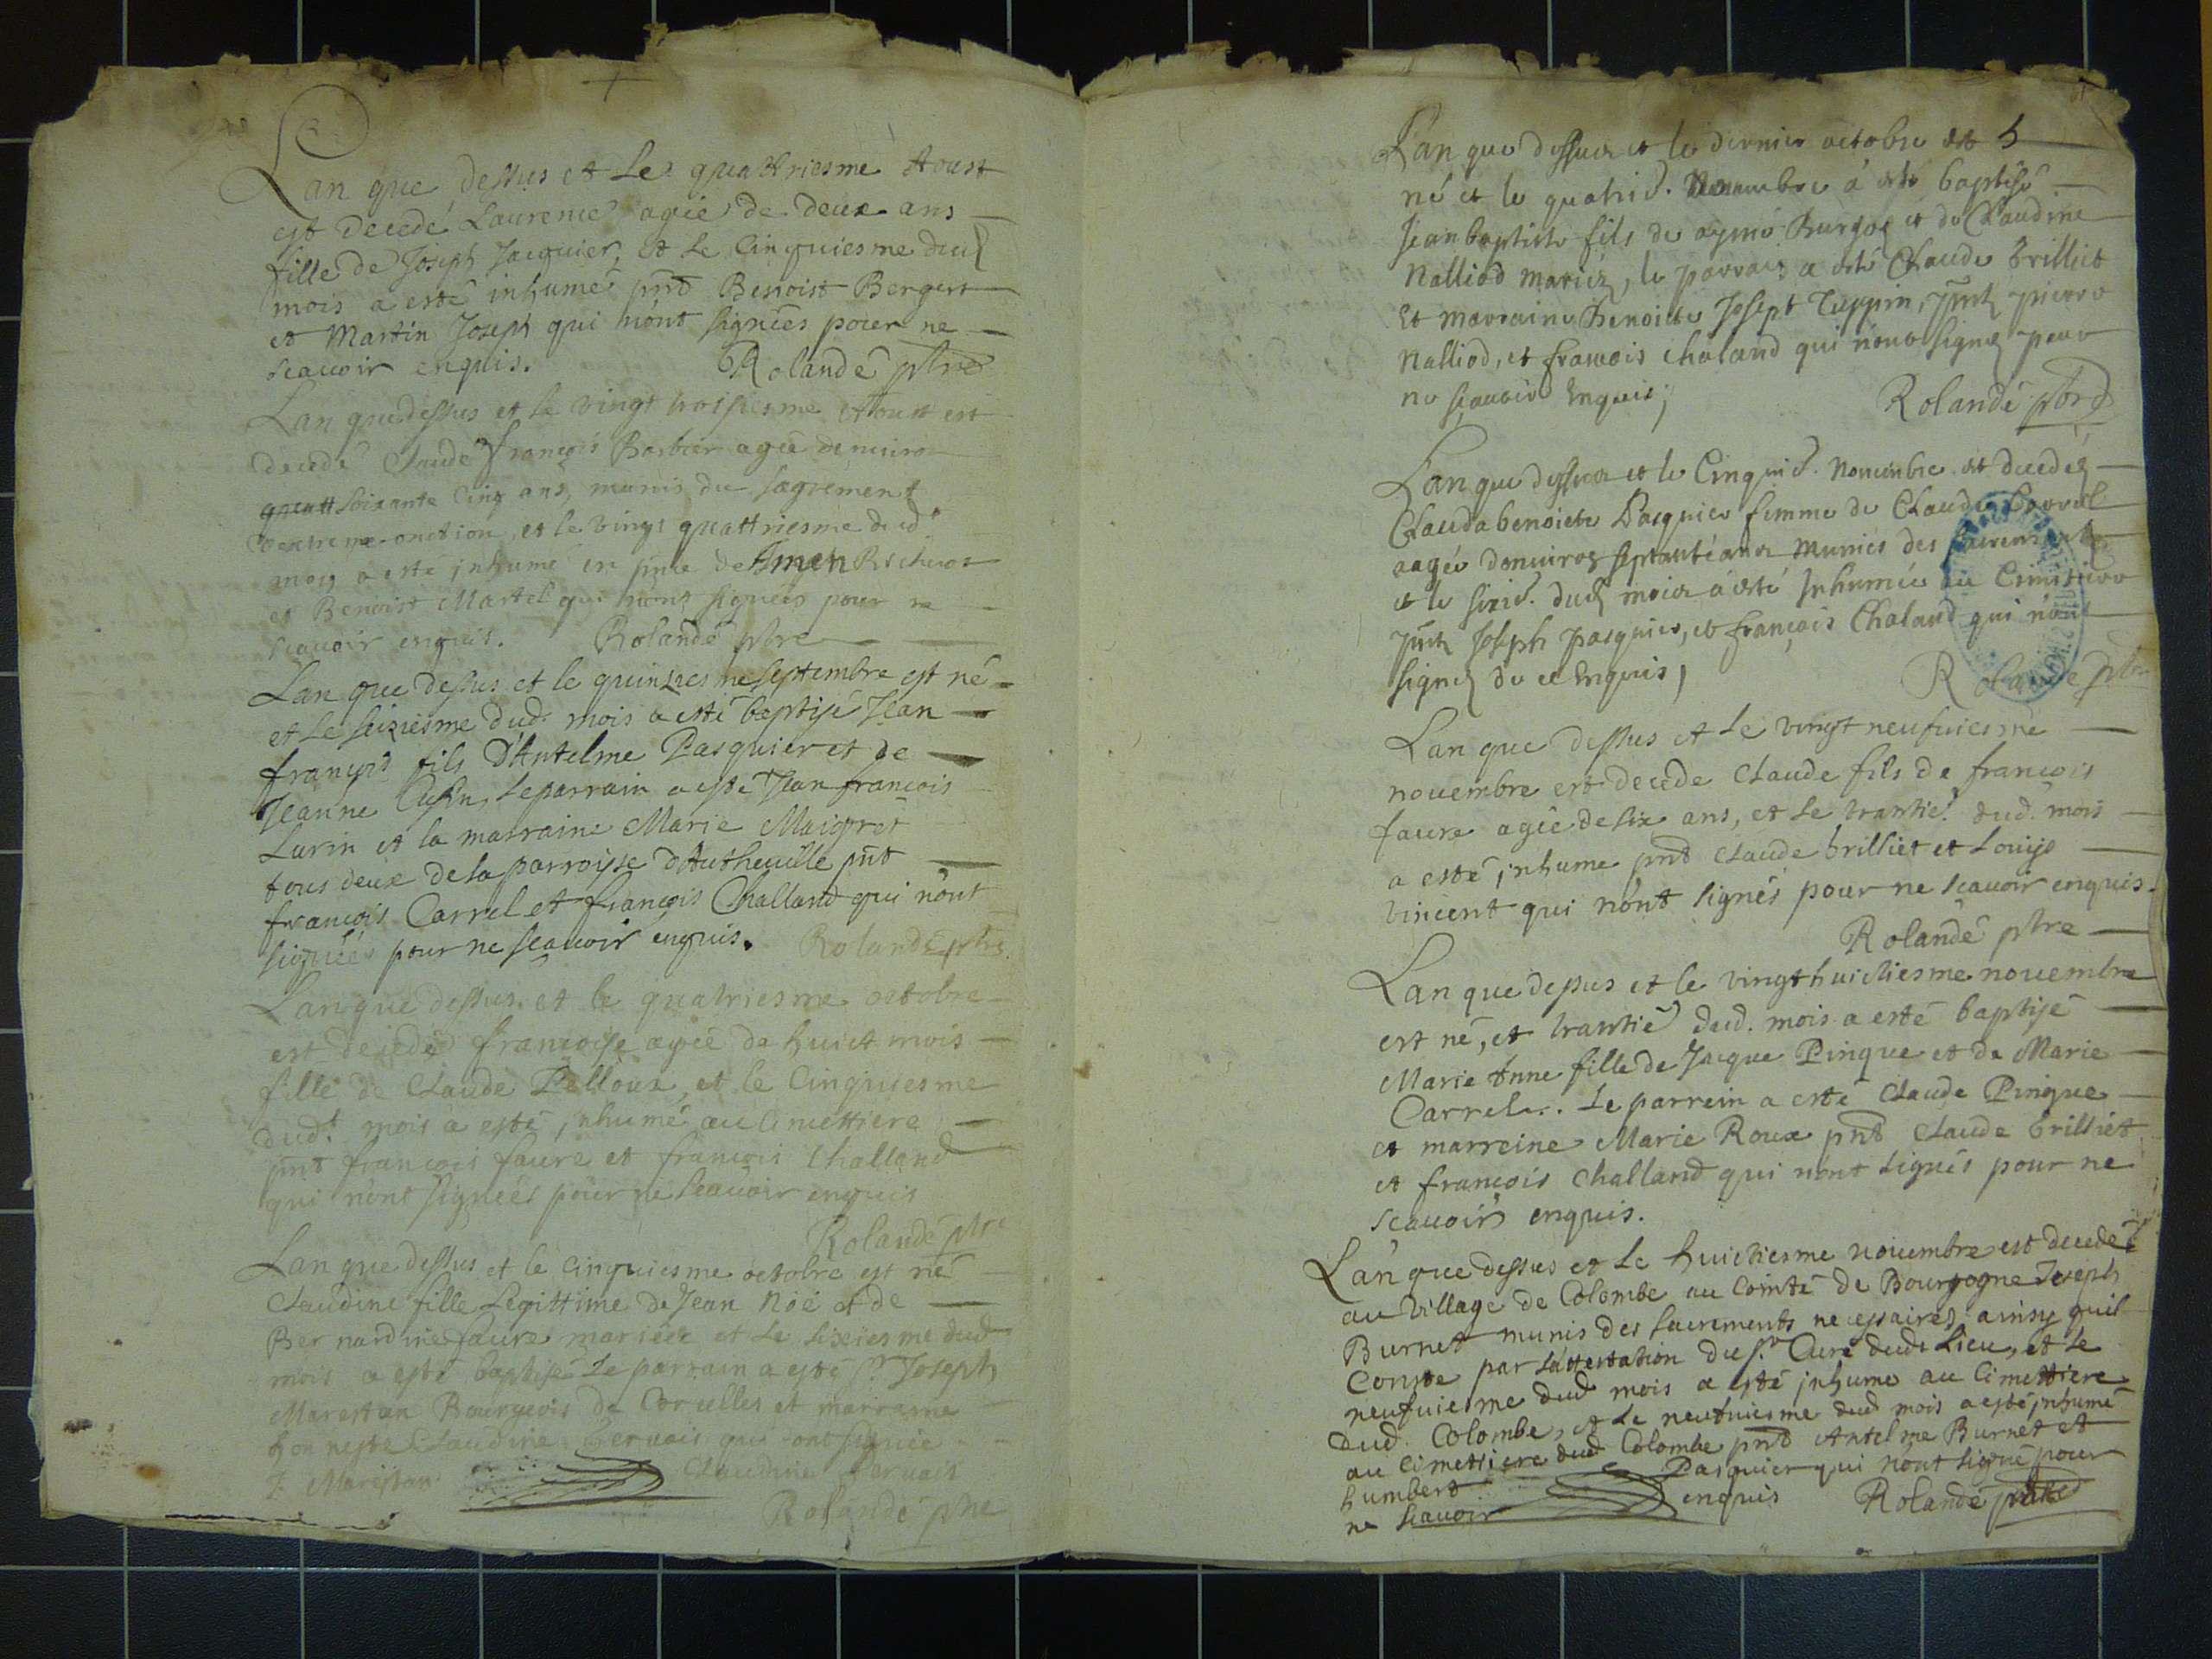 Lan que dessus et le quattriesme Aoust
est decedé Laurence agée de deux ans
fille de Joseph Jacquier, et le Cinquiesme dud
mois a esté inhumé pnt Benoist Berger
et Martin Joseph qui nont signées pour ne
scavoir enquis. Rolande ptre
Lan que dessus et le vingt troisiesme Aoust est
decedé Claude françois Barbier agée denviron
soixante Cinq ans, munis du sagrement
dextreme onction, et le vingt quattriesme dud
mois a esté inhumé en pnce de
et Benoist Martel qui nont signées pour ne
scavoir enquis. Rolande ptre
Lan que dessus et le quinziesme septembre est né
et le seiziesme dud. mois a esté baptisé Jean
françois fils D'Antelme Pasquier et de
Jeanne Cusin, le parrain a esté Jean françois
Lurin et la marraine Marie Maigret
tous deux de la parroisse d'Autheuille pnt
françois Carrel et françois Challand qui nont
signées pour ne scavoir enquis. Rolande ptre
Lan que dessus et le quatriesme octobre
est decedé françoise agée de huict mois
fille de Claude Pelloux, et le Cinquiesme
dud. mois a esté inhumé au Cimettiere
pnt françois faure et françois Challand
qui nont signées pour ne scavoir enquis
Rolande ptre
Lan que dessus et le Cinquiesme octobre est né
Claudine fille Legittime de Jean Noé et de
Bernardine faure mariées et le sixiesme dud
mois a esté baptisé Le parrain a esté Sr Joseph
Marestan Bourgeois de Corcelles et marraine
honneste Claudine Gervais qui ont signée
J. Marestan Claudine Gervais
Rolande ptre
Lan que dessus et le dernier octobre est 5
né et le quatrie. Novembre a esté baptisé
Jean baptiste fils de aymé Burgos et de Claudine
Nalliod mariez, le parrain a esté Claude brilliet
Et marraine Benoiste Joseph Tuppin, pnts pierre
Nalliod, et francois chaland qui nont signez pour
ne scavoir Enquis; Rolande ptre
Lan que dessus et le Cinquie. Novembre est decedée
Clauda benoiste Pasquier femme de Claude Carrel
aagée denviron septante ans munies des sacrements
et le sixie. dud mois a esté Inhumée au Cimitiere
pnts Joseph pasquier, et françois Chaland qui nont
signez de ce Enquis, Rolande ptre
Lan que dessus et le vingt neufuiesme
nouembre est decedé Claude fils de francois
faure agée de six ans, et le trantie. dud. mois
a esté inhumé pnt Claude brilliet et Louise
vincent qui nont signés pour ne scavoir enquis.
Rolande ptre
Lan que dessus et le vingt huictiesme nouembre
est né, et trantie dud. mois a esté baptisé
Marie Anne fille de Jacque Pinque et de Marie
Carrel. Le parrein a esté Claude Pinque
et marreine Marie Roux pnt Claude brilliet
et francois challand qui nont signés pour ne
scauoir enquis.
Lan que dessus et le huictiesme nouembre est decedé
au Village de Colombe au Comté de Bourgogne Joseph
Burnet munis des sacrements necessaires, ainsy quil
Conste par Lattestation du sr Curé dud. Lieu, et le
neufuiesme dud mois a esté inhumé au Cimettiere
dud. Colombe, et le neufuiesme dud mois a esté inhumé
au Cimettiere dud Colombe pnt Antelme Burnet et
humbert Pasquier qui nont signé pour
ne scauoir enquis Rolande ptre